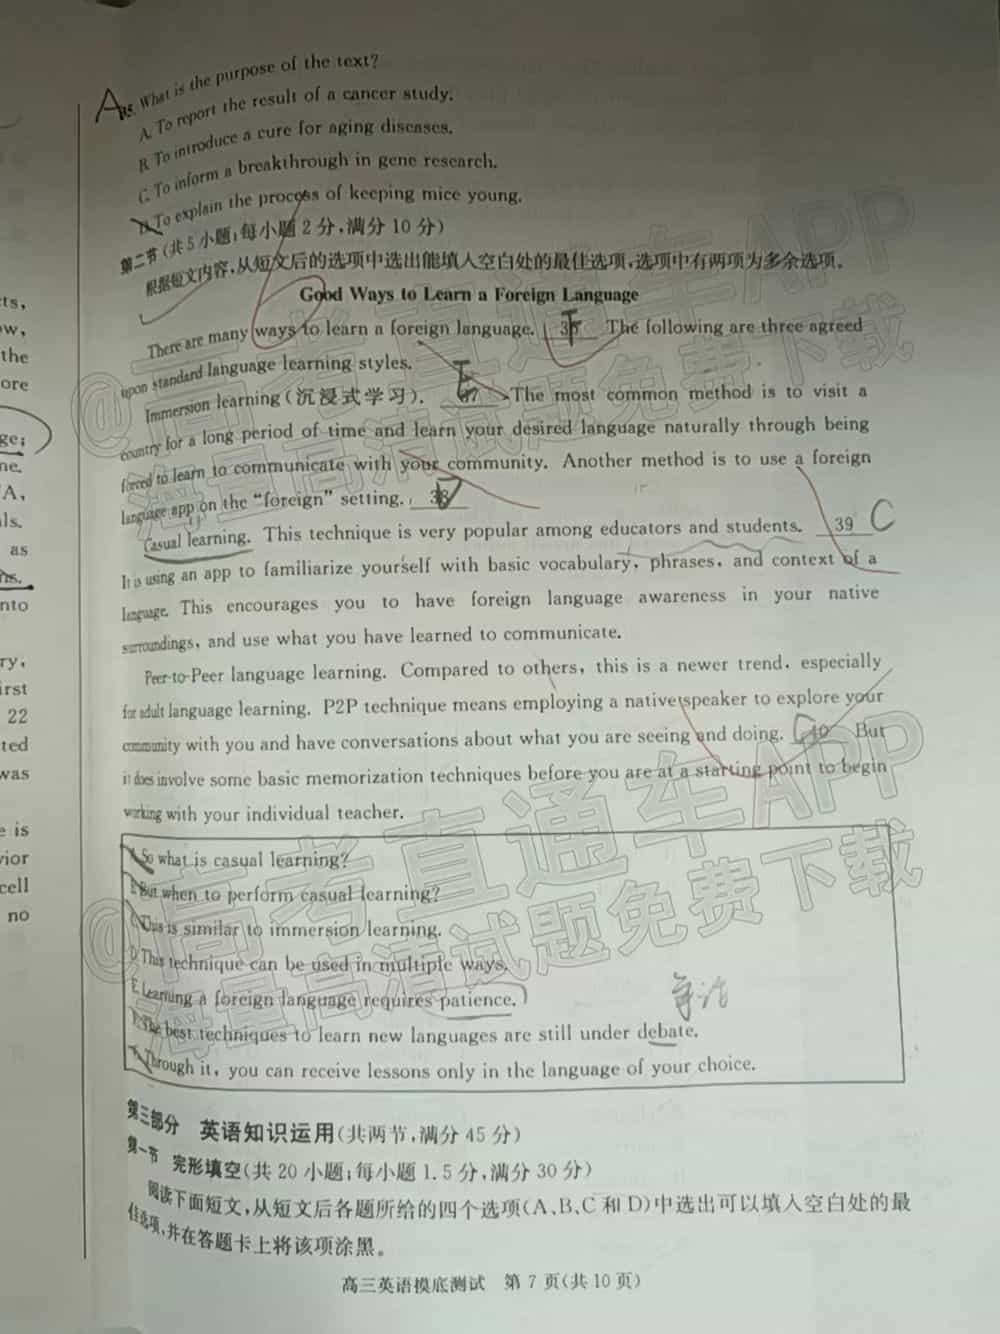 A
35. What is the purpose of the text?
A. To report the result of a cancer study.
B. To introduce a cure for aging diseases.
C. To inform a breakthrough in gene research.
D. To explain the process of keeping mice young.
第二节(共5小题;每小题2分,满分10分)
根据短文内容,从短文后的选项中选出能填入空白处的最佳选项,选项中有两项为多余选项。
Good Ways to Learn a Foreign Language
There are many ways to learn a foreign language. 36 F The following are three agreed
upon standard language learning styles.
Immersion learning(沉浸式学习). 37 E The most common method is to visit a
country for a long period of time and learn your desired language naturally through being
forced to learn to communicate with your community. Another method is to use a foreign
language app on the “foreign” setting. 38
Casual learning. This technique is very popular among educators and students. 39 C
It is using an app to familiarize yourself with basic vocabulary, phrases, and context of a
language. This encourages you to have foreign language awareness in your native
surroundings, and use what you have learned to communicate.
Peer-to-Peer language learning. Compared to others, this is a newer trend, especially
for adult language learning. P2P technique means employing a native speaker to explore your
community with you and have conversations about what you are seeing and doing. 40 G But
it does involve some basic memorization techniques before you are at a starting point to begin
working with your individual teacher.
A. So what is casual learning?
B. But when to perform casual learning?
C. This is similar to immersion learning.
D. This technique can be used in multiple ways.
E. Learning a foreign language requires patience.
争论
F. The best techniques to learn new languages are still under debate.
G. Through it, you can receive lessons only in the language of your choice.
第三部分 英语知识运用(共两节,满分45分)
第一节 完形填空(共20小题;每小题1.5分,满分30分)
阅读下面短文,从短文后各题所给的四个选项(A、B、C和D)中选出可以填入空白处的最
佳选项,并在答题卡上将该项涂黑。
高三英语摸底测试 第7页(共10页)
ts,
ow,
the
ore
ge;
ne.
A,
ls.
as
ns.
nto
ry,
irst
22
ted
was
e is
vior
cell
no
@高考直通车APP
海量高清试题免费下载
@高考直通车APP
海量高清试题免费下载